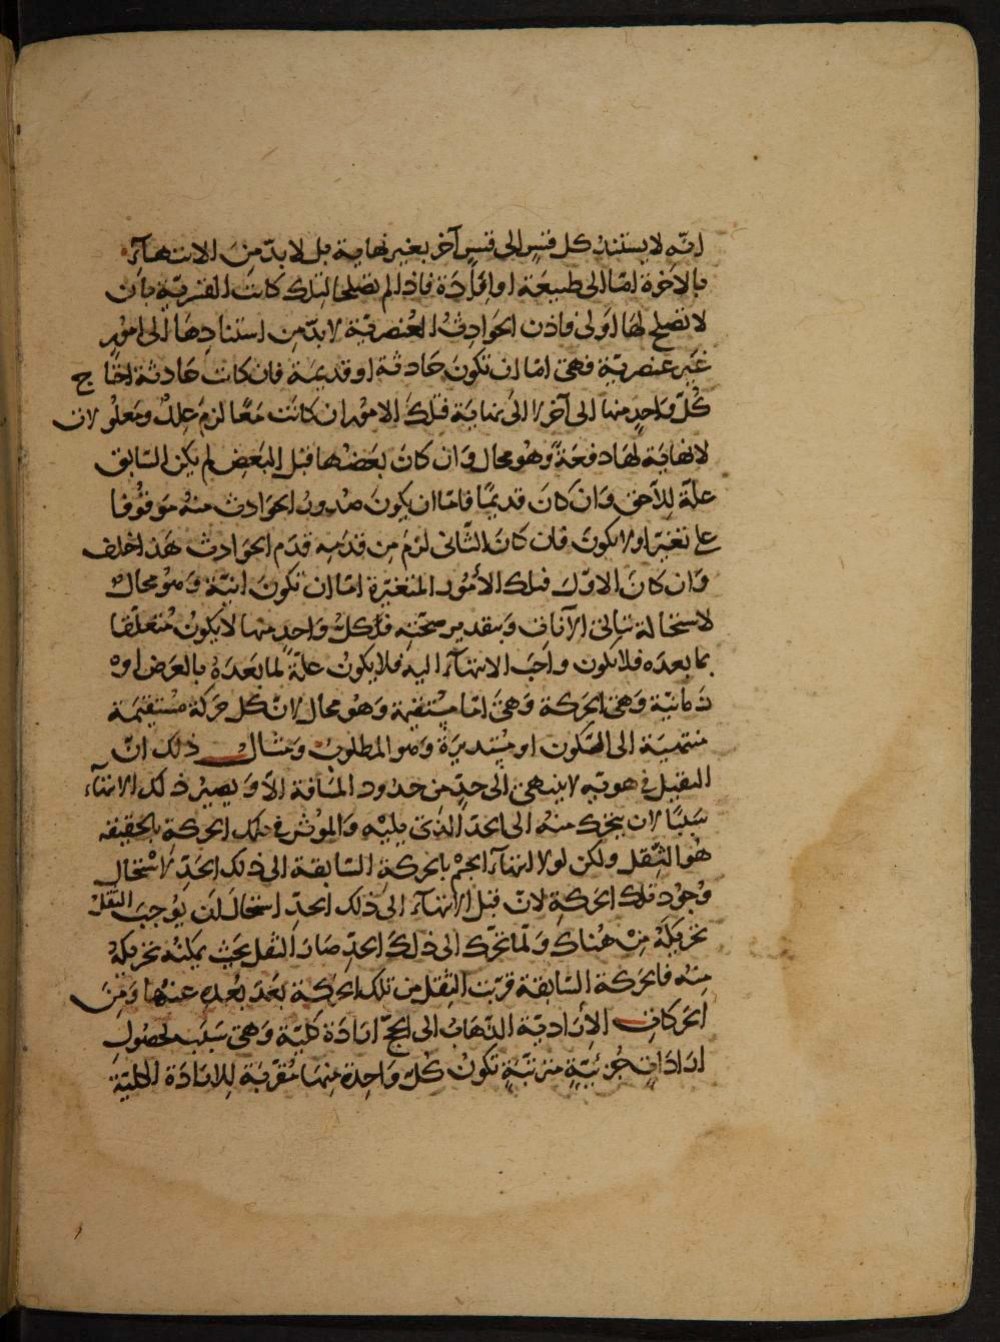 انّه لا يستند كل قسر الى قسر آخر بغير نهاية بل لا بدّ من الانتهاء
بالآخرة امّا الى طبيعة او ارادة فاذا لم تصلحا لتلك كانت القسريّة بان
لا تصلح لها اولى فاذن الحوادث العنصريّة لا بدّ من استنادها الى امور
غير عنصريّة فهي امّا ان تكون حادثة او قديمة فان كانت حادثة احتاج
كلّ واحد منها الى آخر لا الى نهاية فتلك الامور ان كانت معًا لزم علل ومعلولات
لا نهاية لها دفعةً وهو محال وان كان بعضها قبل البعض لم يكن السابق
علّة للاحق وان كان قديمًا فامّا ان يكون صدور الحوادث منه موقوفا
على تغيّر او لا يكون فان كان الثّاني لزم من قدمه قدم الحوادث هذا خلف
وان كان الاوّل فتلك الأمور المتغيّرة امّا ان تكون انيّة وهو محال
لاستحالة تتالي الآنات وبتقدير صحّته فلان كلّ واحد منها لا يكون متعلّقا
بما بعده فلا يكون واجب الانتهاء اليه فلا يكون علّة لما بعده بالعرض او
زمانيّة وهي الحركة وهي امّا مستقيمة وهو محال لانّ كل حركة مستقيمة
منتهية الى السّكون او مستديرة وهو المطلوب ومثال ذلك انّ
الثقيل في هويّه لا ينتهي الى حدّ من حدود المسافة الّا ويصير ذلك الانتهاء
سببًا لان يتحرك منه الى الحدّ الذي يليه والموثر في تلك الحركة بالحقيقة
هو الثّقل ولكن لولا انتهاء الجرم بالحركة السّابقة الى ذلك الحدّ لاستحال
وجود تلك الحركة لانّ قبل الانتهاء الى ذلك الحدّ استحال ان يوجب الثقل
تحريكه من هناك ولمّا تحرّك الى ذلك الحدّ صار الثقل بحيث يمكنه تحريكه
منه فالحركة السّابقة قرّبت الثّقل من تلك الحركة بعد بعده عنها ومن
الحركات الأراديّة الذّهاب الى الحجّ ارادة كليّة وهي سبب لحصول
ارادات جزئيّة مترتّبة تكون كلّ واحدة منها مقرّبة للارادة الكليّة